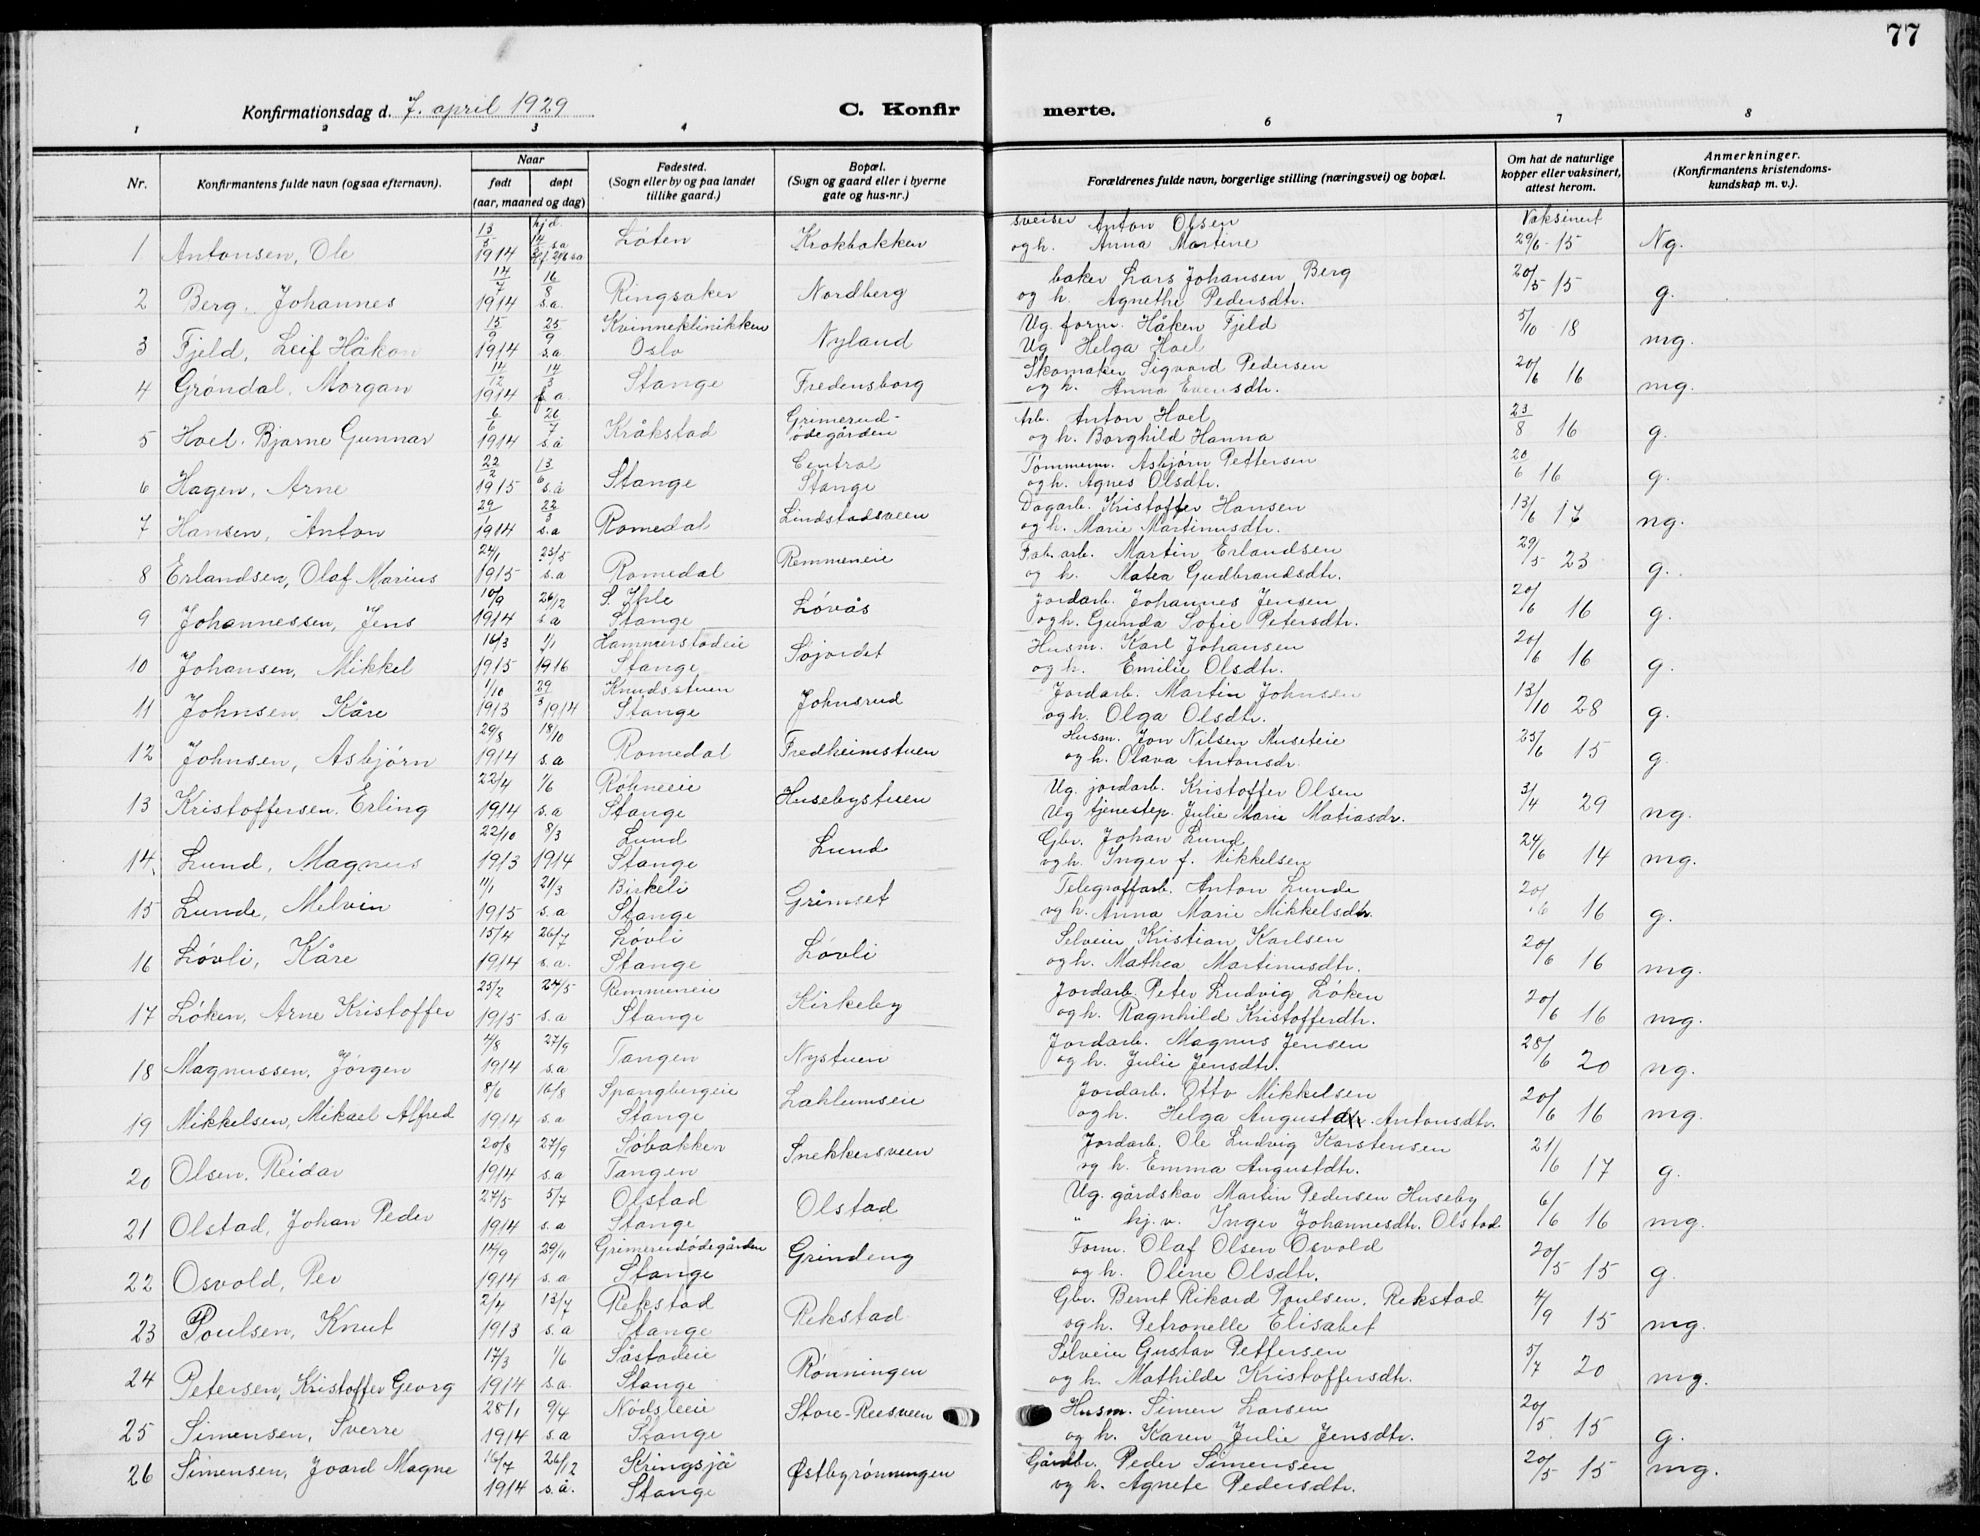 77
Konfirmationsdag d. 7. april 1929
C. Konfir merte.
1 2 3 4 6 7 8
Nr. Konfirmantens fulde navn (ogsaa efternavn). Naar født døpt (aar, maaned og dag) Fødested. (Sogn eller by og paa landet tillike gaard.) Bopæl. (Sogn og gaard eller i byerne gate og hus-nr.) Forældrenes fulde navn, borgerlige stilling (næringsvei) og bopæl. Om hat de naturlige kopper eller vaksinert, attest herom. Anmerkninger. (Konfirmantens kristendomskundskap m. v.).
sveiser Anton Olsen Vaksinert
1 Antonsen, Ole 1914 Løten Krokbakken og h. Anna Martine 29/6-15 Ng.
14/7 16/8 baker Lars Johansen Berg
2 Berg, Johannes 1914 s.a. Ringsaker Nordberg og h. Agnethe Pedersdtr. 20/5 15 g.
15/9 25/9 Kvinneklinikken Ug. form. Håken Fjeld
3 Fjeld, Leif Håkon 1914 s.a. Oslo Nyland Ug Helga Hoel 5/10 18 mg.
14/12 14/3 Skomaker Sigvard Pedersen
4 Grøndal, Morgan 1914 Stange Fredensborg og h. Anna Evensdtr. 20/6 16 mg.
6/6 26/7 Grimerud- Arb. Anton Hoel
5 Hoel, Bjarne Gunnar 1914 s.å Kråkstad ødegården og h. Borghild Hanna 23/8 16 g.
22/2 13/6 Central Tømmerm. Asbjørn Pettersen
6 Hagen, Arne 1915 s.å Stange Stange og h. Agnes Olsdtr. 20/6 16 g.
29/1 22/3 Dagarb. Kristoffer Hansen
7 Hansen, Anton 1914 s.a Romedal Lindstadsveen og h. Marie Martinusdtr. 13/6 17 ng.
24/1 23/5 Fab. arb. Martin Erlandsen
8 Erlandsen, Olaf Marius 1915 s.a Romedal Remmeneie og h. Matea Gudbrandsdtr. 29/5 23 g.
10/9 26/12 Jordarb. Johannes Jensen
9 Johannessen, Jens 1914 s.a Stange Løvås og h. Gunda Sofie Petersdtr. 20/6 16 g.
16/3 1/1 Hammerstadeie Husm. Karl Johansen
10 Johansen, Mikkel 1915 1916 Stange Søjordet og h. Emilie Olsdtr. 20/6 16 g.
1/10 29/3 Knudsstuen Jordarb. Martin Johnsen
11 Johnsen, Kåre 1913 1914 Stange Johnsrud og h. Olga Olsdtr. 13/10 28 g.
29/8 18/10 Husm. Jon Nilsen Museteie
12 Johnsen, Asbjørn 1914 s.a Romedal Fredheimstuen og h. Olava Antonsdr. 25/6 15 g.
22/4 1/6 Røhneeie Ug. jordarb. Kristoffer Olsen
13 Kristoffersen, Erling 1914 s.a Stange Husebystuen Ug tjenestep. Julie Marie Matiasdr. 3/4 29 ng.
22/10 8/3 Lund Gbr. Johan Lund
14 Lund, Magnus 1913 1914 Stange Lund og h. Inger f. Mikkelsen 24/6 14 mg.
11/1 21/3 Birkeli Telegrafarb. Anton Lunde
15 Lunde, Melvin 1915 s.a Stange Grimset og h. Anna Marie Mikkelsdtr. 20/6 16 g.
15/4 26/7 Løvli Selveier Kristian Karlsen
16 Løvli, Kåre 1914 s.a. Stange Løvli og h. Mathea Martinusdtr. 20/6 16 mg.
25/2 24/5 Remmeneie Jordarb. Peter Ludvig Løken
17 Løken, Arne Kristoffer 1915 s.a Stange Kirkeby og h. Ragnhild Kristofferdtr. 20/6 16 mg.
4/8 27/9 Jordarb. Magnus Jensen
18 Magnussen, Jørgen 1914 s.a Tangen Nystuen og h. Julie Jensdtr. 28/6 20 ng.
8/6 16/8 Spangbergeie Jordarb. Otto Mikkelsen
19 Mikkelsen, Mikael Alfred 1914 s.a Stange Lahlumseie og h. Helga Augusta Antonsdtr. 20/6 16 mg.
20/8 27/9 Søbakken Jordarb. Ole Ludvig Karstensen
20 Olsen, Reidar 1914 s.a Tangen Snekkersveen og h. Emma Augustdtr. 21/6 17 g.
27/5 5/7 Olstad Ug. gårdskar Martin Pedersen Huseby
21 Olstad, Johan Peder 1914 s.a Stange Olstad " hj. v. Inger Johannesdtr. Olstad 6/6 16 mg.
14/9 29/11 Grimerudødegården Form. Olaf Olsen Osvold
22 Osvold, Per 1914 s.a Stange Grindeng og h. Oline Olsdtr. 20/5 15 g.
2/4 13/7 Rekstad Gbr. Bernt Rikard Poulsen, Rekstad
23 Poulsen, Knut 1913 s.a Stange Rekstad og h. Petronelle Elisabet 4/9 15 mg.
17/3 1/6 Såstadeie Selveier Gustav Pettersen
24 Petersen, Kristoffer Georg 1914 s.a. Stange Rønningen og h. Mathilde Kristoffersdtr. 5/7 20 mg.
28/1 9/4 Nødsleeie Husm. Simen Larsen
25 Simensen, Sverre 1914 s.a Stange Store-Reesveen og h. Karen Julie Jensdtr. 20/5 15 g.
16/7 26/12 Kringsjå Gårdbr. Peder Simensen
26 Simensen, Joard Magne 1914 s.å. Stange Østbyrønningen og h. Agnete Pedersdtr. 20/5 15 mg.